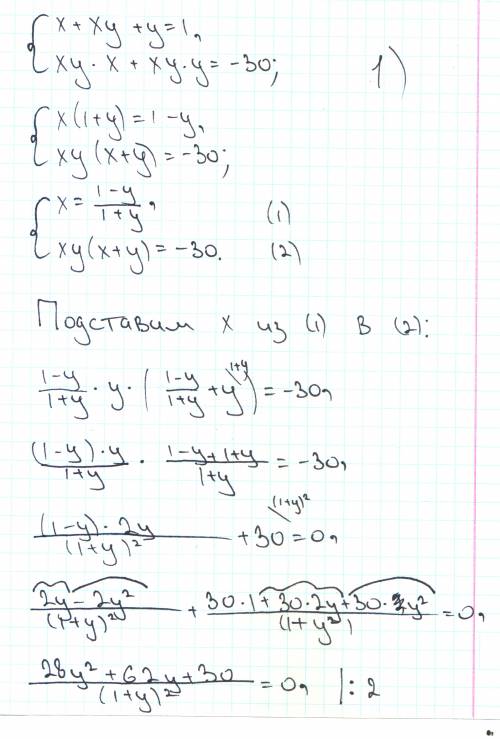 x + xy + y = 1,
xy · x + xy · y = -30; 1)
x(1+y) = 1 - y,
xy(x+y) = -30;
x = (1-y)/(1+y), (1)
xy(x+y) = -30. (2)
Подставим x из (1) в (2):
(1-y)/(1+y) · y · ((1-y)/(1+y) + y \1+y) = -30,
((1-y) · y)/(1+y) · (1-y+1+y)/(1+y) = -30,
((1-y) · 2y)/(1+y)² + 30 \(1+y)² = 0,
(2y - 2y²)/(1+y)² + (30·1 + 30·2y + 30·y²)/(1+y²) = 0,
(28y² + 62y + 30)/(1+y)² = 0, |: 2